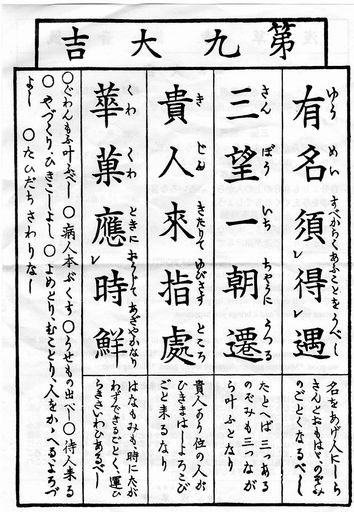 第九大吉
有名須得遇
ゆう めい すべからくあふことをうべし
名をあげ人にしら
れんとおもはゞのぞみ
のごとくなるべし
三望一朝遷
さん ぼう いち ちやうに うつる
たとへば三つある
のぞみも三つなが
ら叶ふとなり
貴人來指處
き じん きたりて ゆびさす ところ
貴人 位の人が
ひきまはしよろこび
ごと来るなり
華菓應時鮮
くわ くわ ときに おうじて あざやかなり
はなもみも時にたが
わずできるごとく、運ひ
らきさいわひあるべし
〇ぐわんもふ叶ふべし 〇病人本ぶくす 〇うせもの出べし 〇待人来る
〇やづくり、ひきこしよし 〇よめとり、むことり、人をかゝへるよろづ
よし 〇たびだちさわりなし